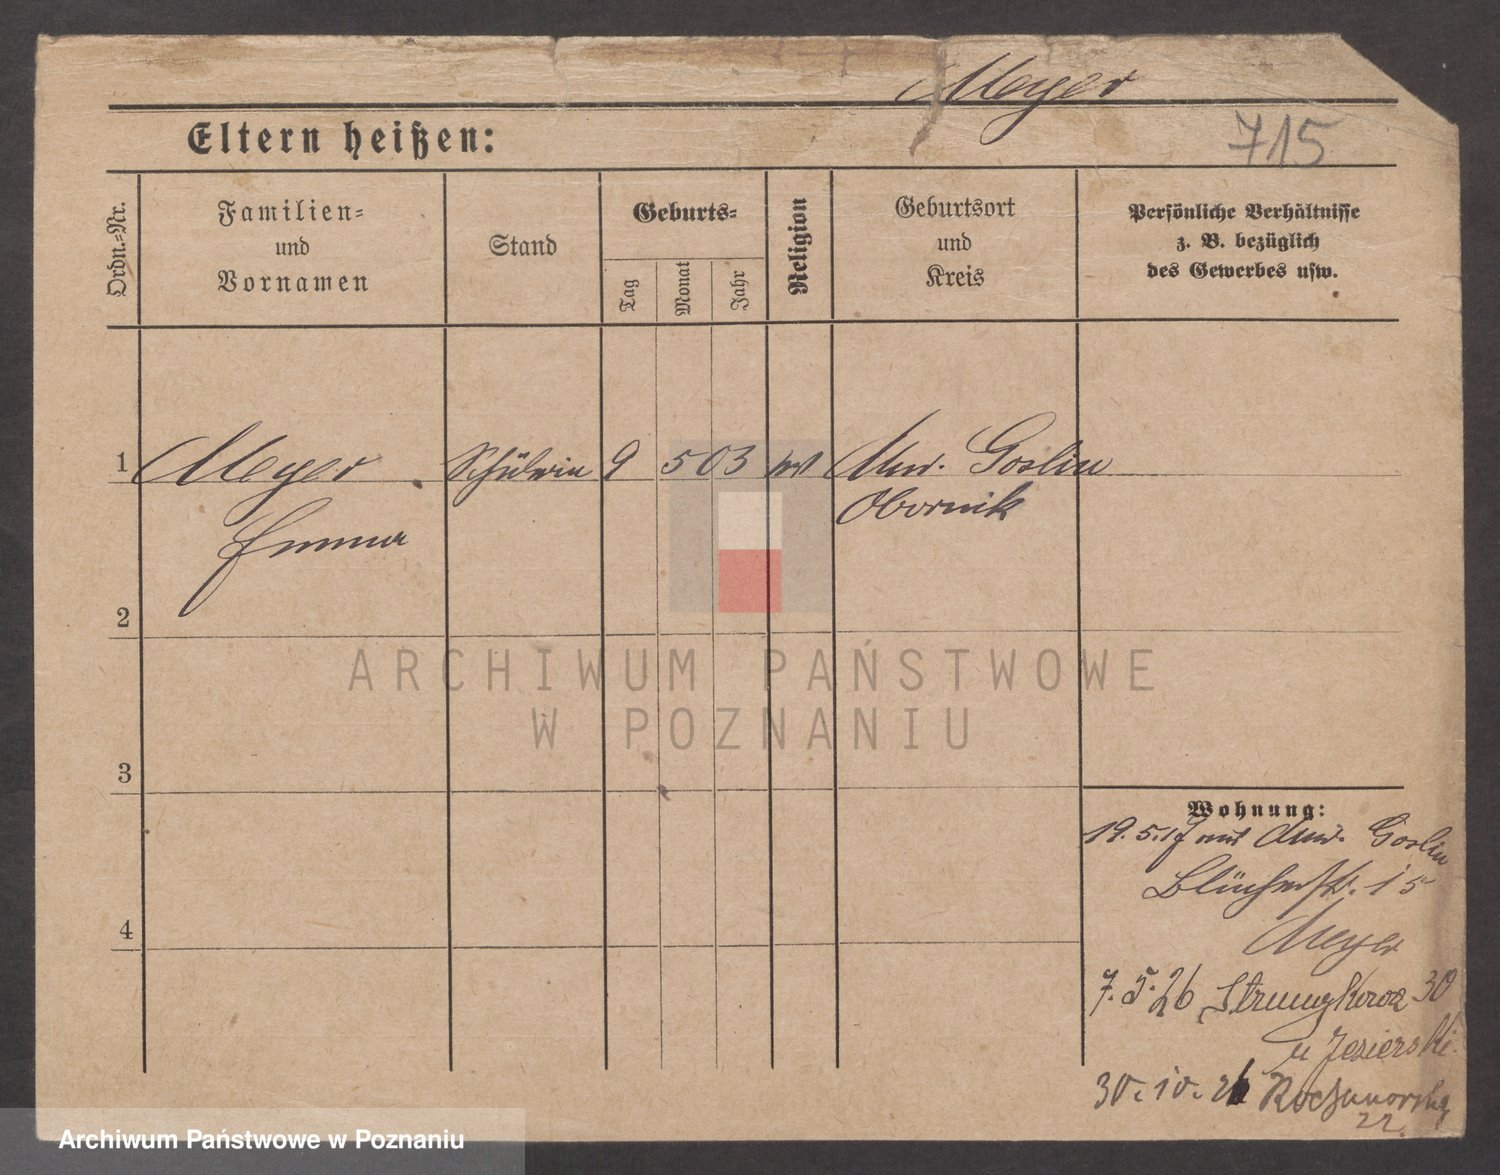 Meyer
715
Eltern heißen:
Ordn.-Nr.
Familien-
und
Vornamen
Stand
Geburts-
Tag
Monat
Jahr
Religion
Geburtsort
und
Kreis
Persönliche Verhältnisse
z. B. bezüglich
des Gewerbes usw.
1 Meyer Schülerin 9 5 03 Mur. Goslin
Emma Obornik
2
ARCHIWUM PAŃSTWOWE
W POZNANIU
3
Wohnung:
19.5.17 aus Mur. Goslin
Blücherstr. 15
Meyer
4
7.5.26 Strumykowa 30
u Jezierski
30.10.26
22.
Archiwum Państwowe w Poznaniu